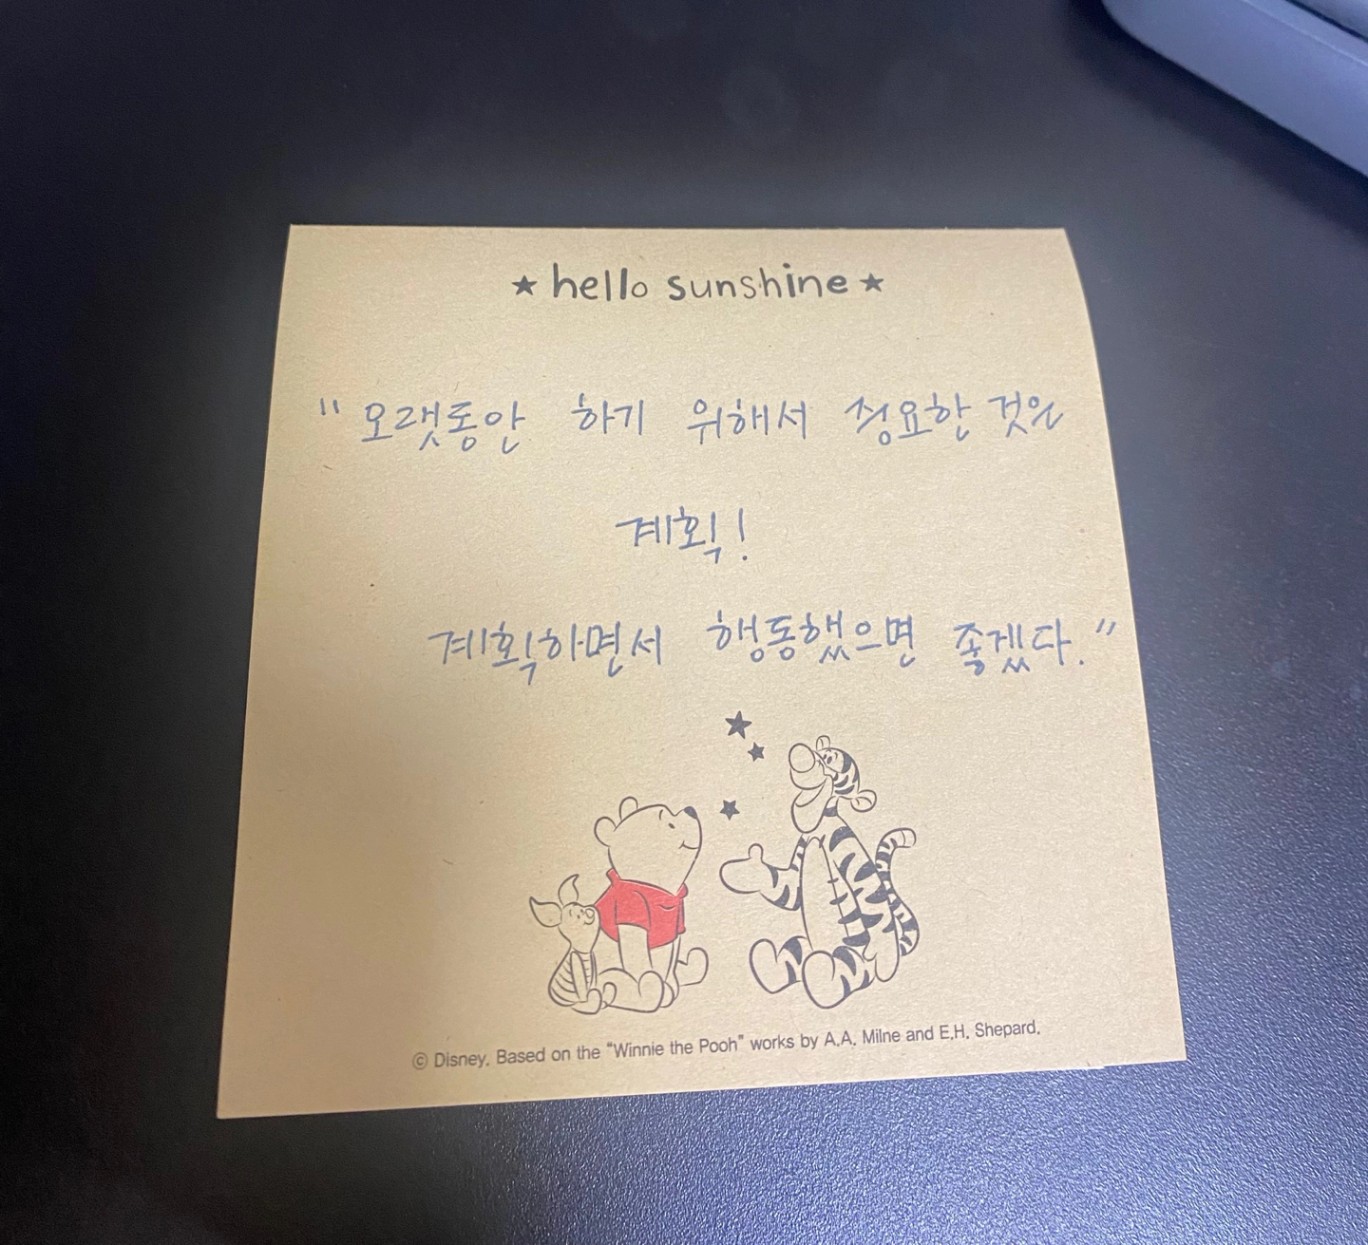 ★ hello sunshine ★
"오랫동안 하기 위해서 필요한 것은
계획!
계획하면서 행동했으면 좋겠다."
© Disney. Based on the "Winnie the Pooh" works by A.A. Milne and E.H. Shepard.